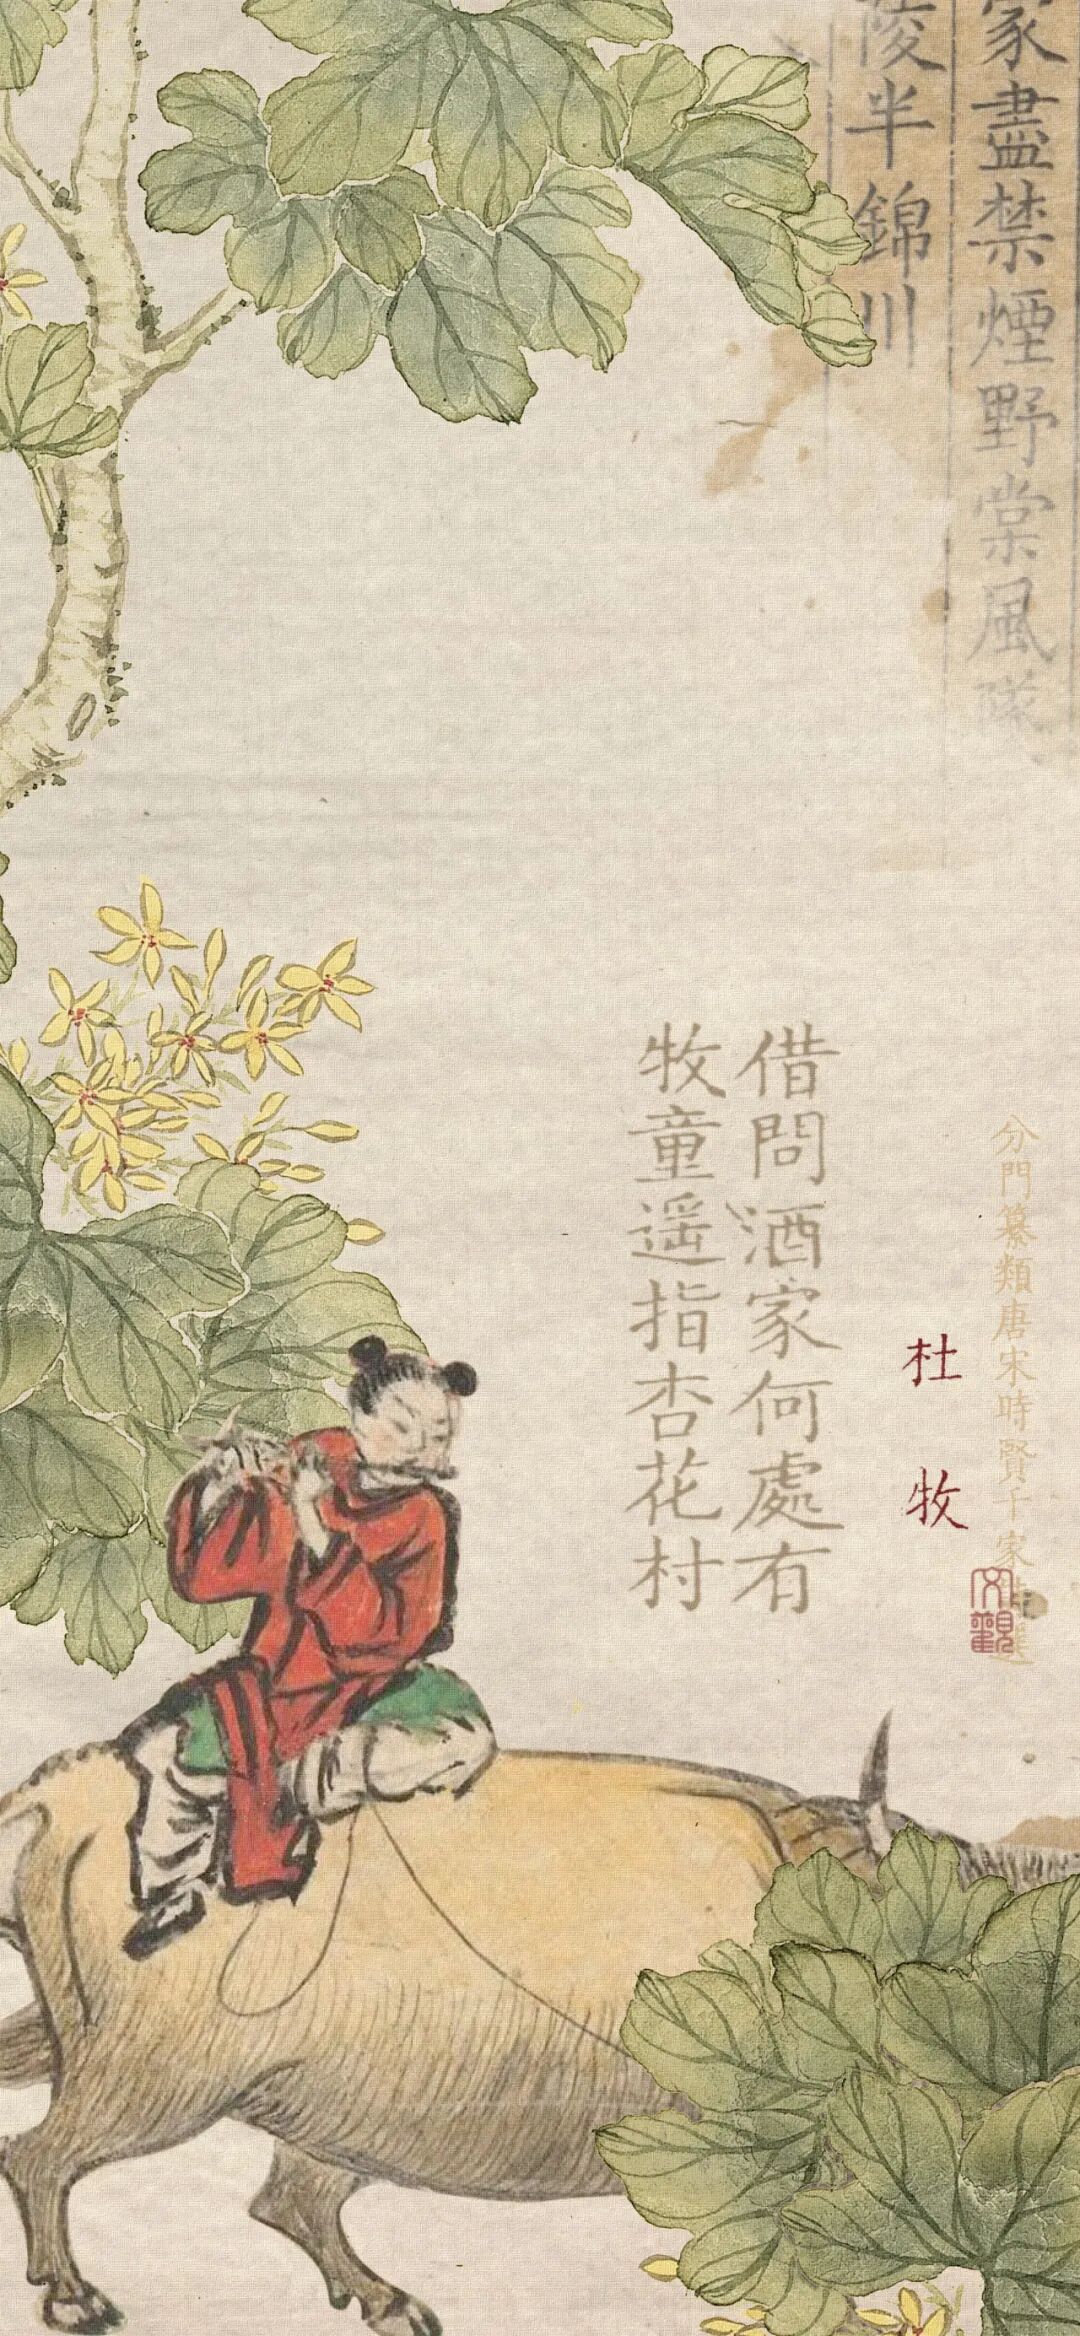 家盡禁煙野棠風墜
陵半錦川
分門纂類唐宋時賢千家詩選
杜牧
借問酒家何處有
牧童遥指杏花村